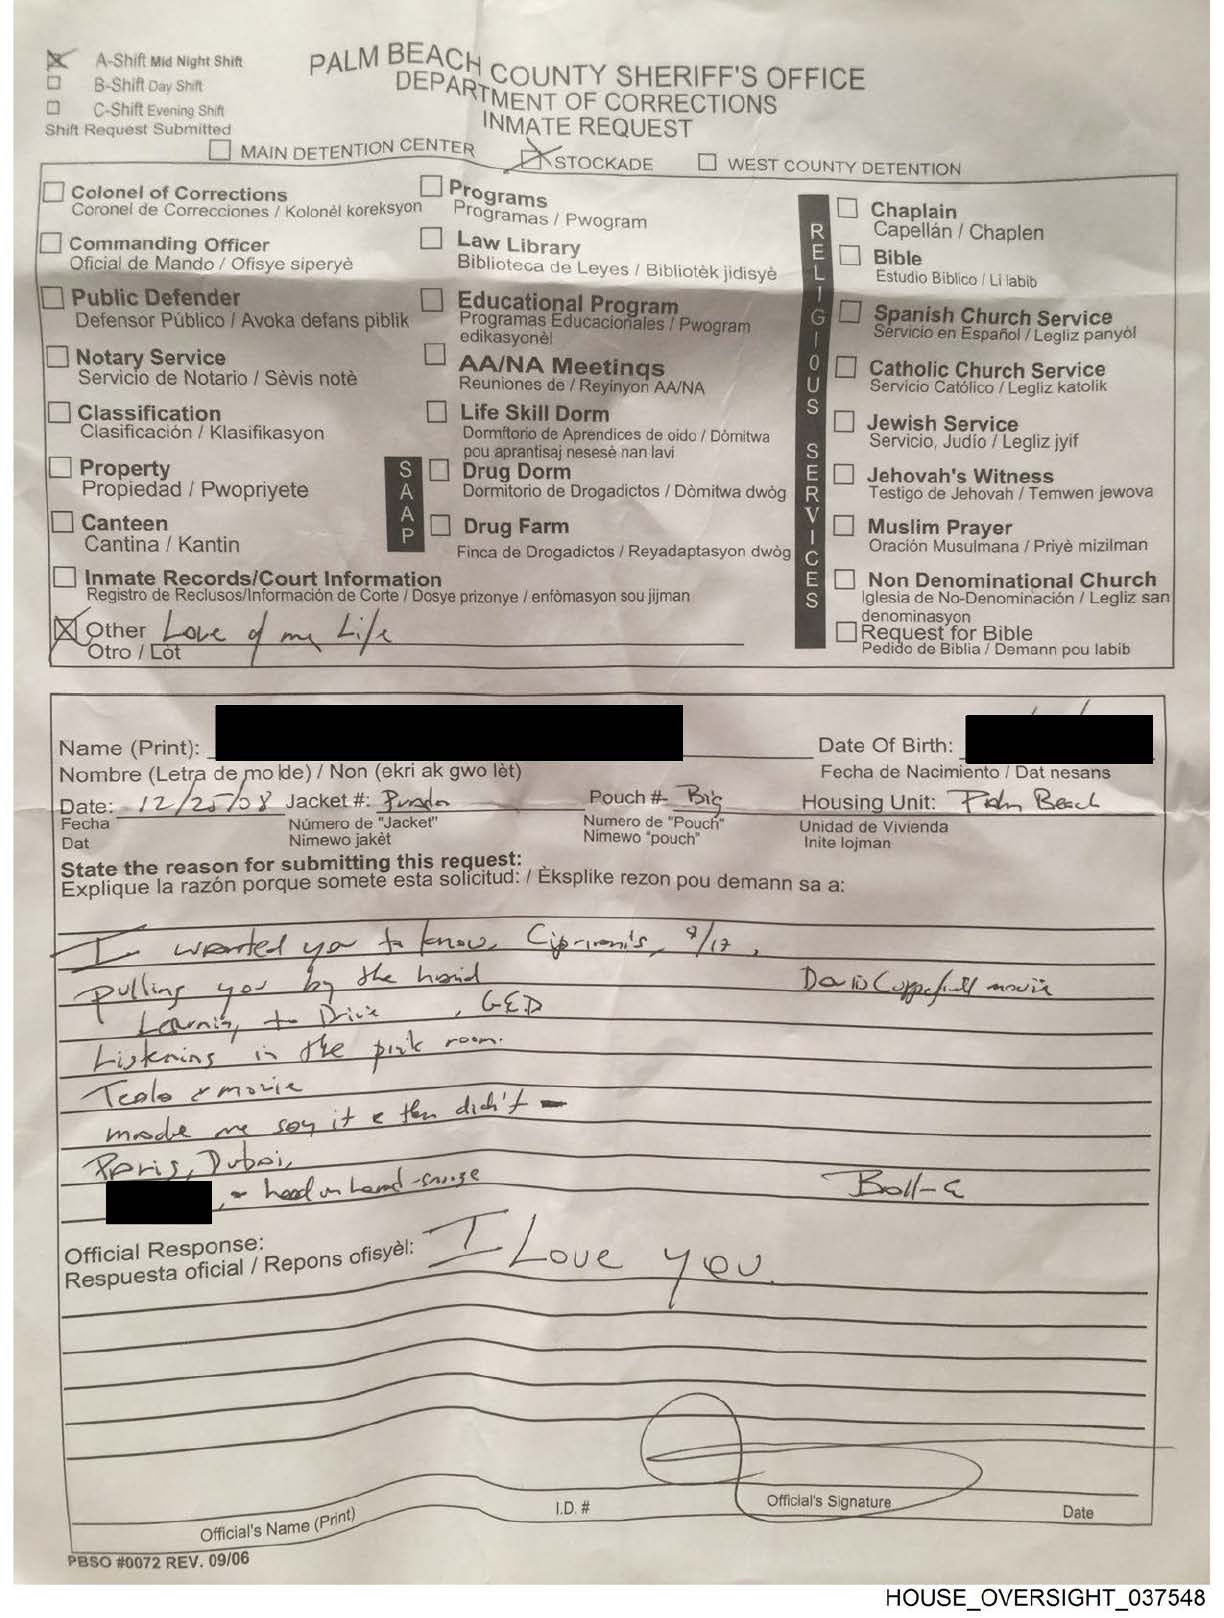 A-Shift Mid Night Shift
B-Shift Day Shift
C-Shift Evening Shift
Shift Request Submitted
PALM BEACH COUNTY SHERIFF'S OFFICE
DEPARTMENT OF CORRECTIONS
INMATE REQUEST
MAIN DETENTION CENTER STOCKADE WEST COUNTY DETENTION
Colonel of Corrections
Coronel de Correcciones / Kolonèl koreksyon
Commanding Officer
Oficial de Mando / Ofisye siperyè
Public Defender
Defensor Público / Avoka defans piblik
Notary Service
Servicio de Notario / Sèvis notè
Classification
Clasificación / Klasifikasyon
Property
Propiedad / Pwopriyete
Canteen
Cantina / Kantin
Inmate Records/Court Information
Registro de Reclusos/Información de Corte / Dosye prizonye / enfòmasyon sou jijman
Other Love of my Life
Otro / Lòt
Programs
Programas / Pwogram
Law Library
Biblioteca de Leyes / Bibliotèk jidisyè
Educational Program
Programas Educacionales / Pwogram
edikasyonèl
AA/NA Meetings
Reuniones de / Reyinyon AA/NA
SAAP
Life Skill Dorm
Dormitorio de Aprendices de oido / Dòmitwa
pou aprantisaj nesesè nan lavi
Drug Dorm
Dormitorio de Drogadictos / Dòmitwa dwòg
Drug Farm
Finca de Drogadictos / Reyadaptasyon dwòg
RELIGIOUS SERVICES
Chaplain
Capellán / Chaplen
Bible
Estudio Biblico / Li labib
Spanish Church Service
Servicio en Español / Legliz panyòl
Catholic Church Service
Servicio Católico / Legliz katolik
Jewish Service
Servicio, Judío / Legliz jyif
Jehovah's Witness
Testigo de Jehovah / Temwen jewova
Muslim Prayer
Oración Musulmana / Priyè mizilman
Non Denominational Church
Iglesia de No-Denominación / Legliz san
denominasyon
Request for Bible
Pedido de Biblia / Demann pou labib
Name (Print): Date Of Birth:
Nombre (Letra de molde) / Non (ekri ak gwo lèt) Fecha de Nacimiento / Dat nesans
Date: 12/25/08 Jacket #: Prada Pouch # Big Housing Unit: Palm Beach
Fecha Número de "Jacket" Numero de "Pouch" Unidad de Vivienda
Dat Nimewo jakèt Nimewo "pouch" Inite lojman
State the reason for submitting this request:
Explique la razón porque somete esta solicitud: / Èksplike rezon pou demann sa a:
I wanted you to know, Cipriani's, 9/17,
pulling you by the hand David Copperfield movie
Learning to Drive, GED
Listening in the pink room.
movie
made me say it & then didn't -
Paris, Dubai,
head on hand - Ball-G
Official Response:
Respuesta oficial / Repons ofisyèl: I Love you.
Official's Name (Print) I.D. # Official's Signature Date
PBSO #0072 REV. 09/06
HOUSE_OVERSIGHT_037548